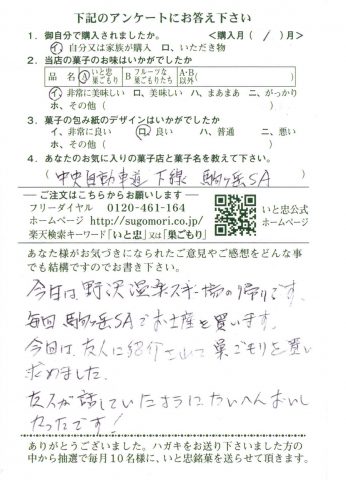 下記のアンケートにお答え下さい
1. 御自分で購入されましたか。 <購入月( / )月>
イ、自分又は家族が購入 ロ、いただき物
2. 当店の菓子のお味はいかがでしたか
品名 A いと忠巣ごもり B フルーツな菓子たち巣ごもり A・B以外( )
イ、非常に美味しい ロ、美味しい ハ、まあまあ ニ、がっかり
ホ、その他( )
3. 菓子の包み紙のデザインはいかがでしたか
イ、非常に良い ロ、良い ハ、普通 ニ、悪い
ホ、その他( )
4. あなたのお気に入りの菓子店と菓子名を教えて下さい。
(中央自動車道 下線 駒ヶ岳SA )
―ご注文はこちらからお願いします―
フリーダイヤル 0120-461-164
ホームページ http://sugomori.co.jp/
楽天検索キーワード「いと忠」又は「巣ごもり」
いと忠公式
ホームページ
あなた様がお気づきになられたご意見やご感想をどんな事
でも結構ですのでお書き下さい。
今日は、野沢温泉スキー場の帰りです。
毎回、駒ヶ岳SAでお土産を買います。
今回は、友人に紹介されて巣ごもりを買い
求めました。
友人が話していたようにたいへんおいし
かったです!
ありがとうございました。ハガキをお送り下さいました方の
中から抽選で毎月10名様に、いと忠銘菓を送らせて頂きます。